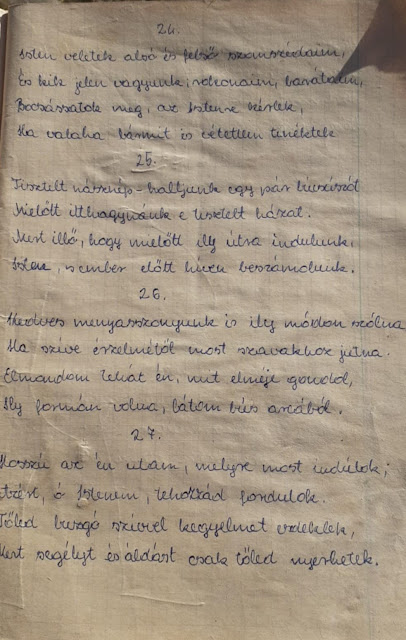 24.
Isten veletek alsó és felső szomszédaim,
És kik jelen vagyunk, rokonaim, barátaim,
Bocsássatok meg, az Istenre kérlek,
Ha valaha bármit is vétettem tinéktek
25.
Tisztelt násznép - halljunk egy pár búcsúszót
Mielőtt itthagynánk e tisztelt házat.
Mert illő, hogy mielőtt ily útra indulunk,
Isten, s ember előtt híven beszámoljunk.
26.
Kedves menyasszonyunk is ily módon szólna
Ha szíve érzelmétől most szavakhoz jutna.
Elmondom tehát én, mit elméje gondol,
Ily formán volna, látom bús arcából.
27.
Hosszú az én utam, melyre most indulok;
Azért, ó Istenem, tehozzád fordulok.
Tőled buzgó szívvel kegyelmet esdeklek,
Mert segélyt és áldást csak tőled nyerhetek.